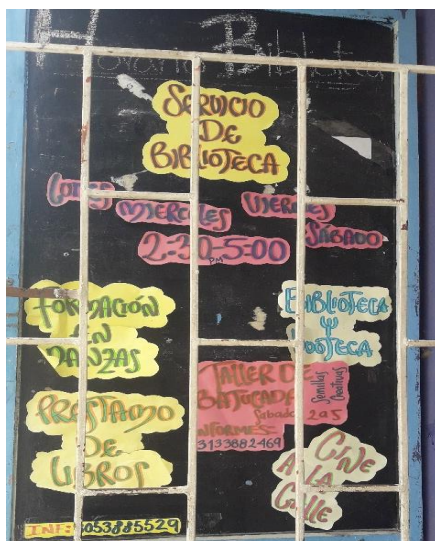 Horario Biblioteca
SERVICIO
DE
BIBLIOTECA
LUNES
MIERCOLES
VIERNES
SABADO
2:30-5:00
PM
FORMACIÓN
EN
DANZAS
BIBLIOTECA
Y
TALLER DE
BATUCADA
Sabado 2a5
INFORMES=
3133882469
Semillas
Creativas
PRESTAMO
DE
LIBROS
CINE
A LA
CALLE
INF: 3053885529